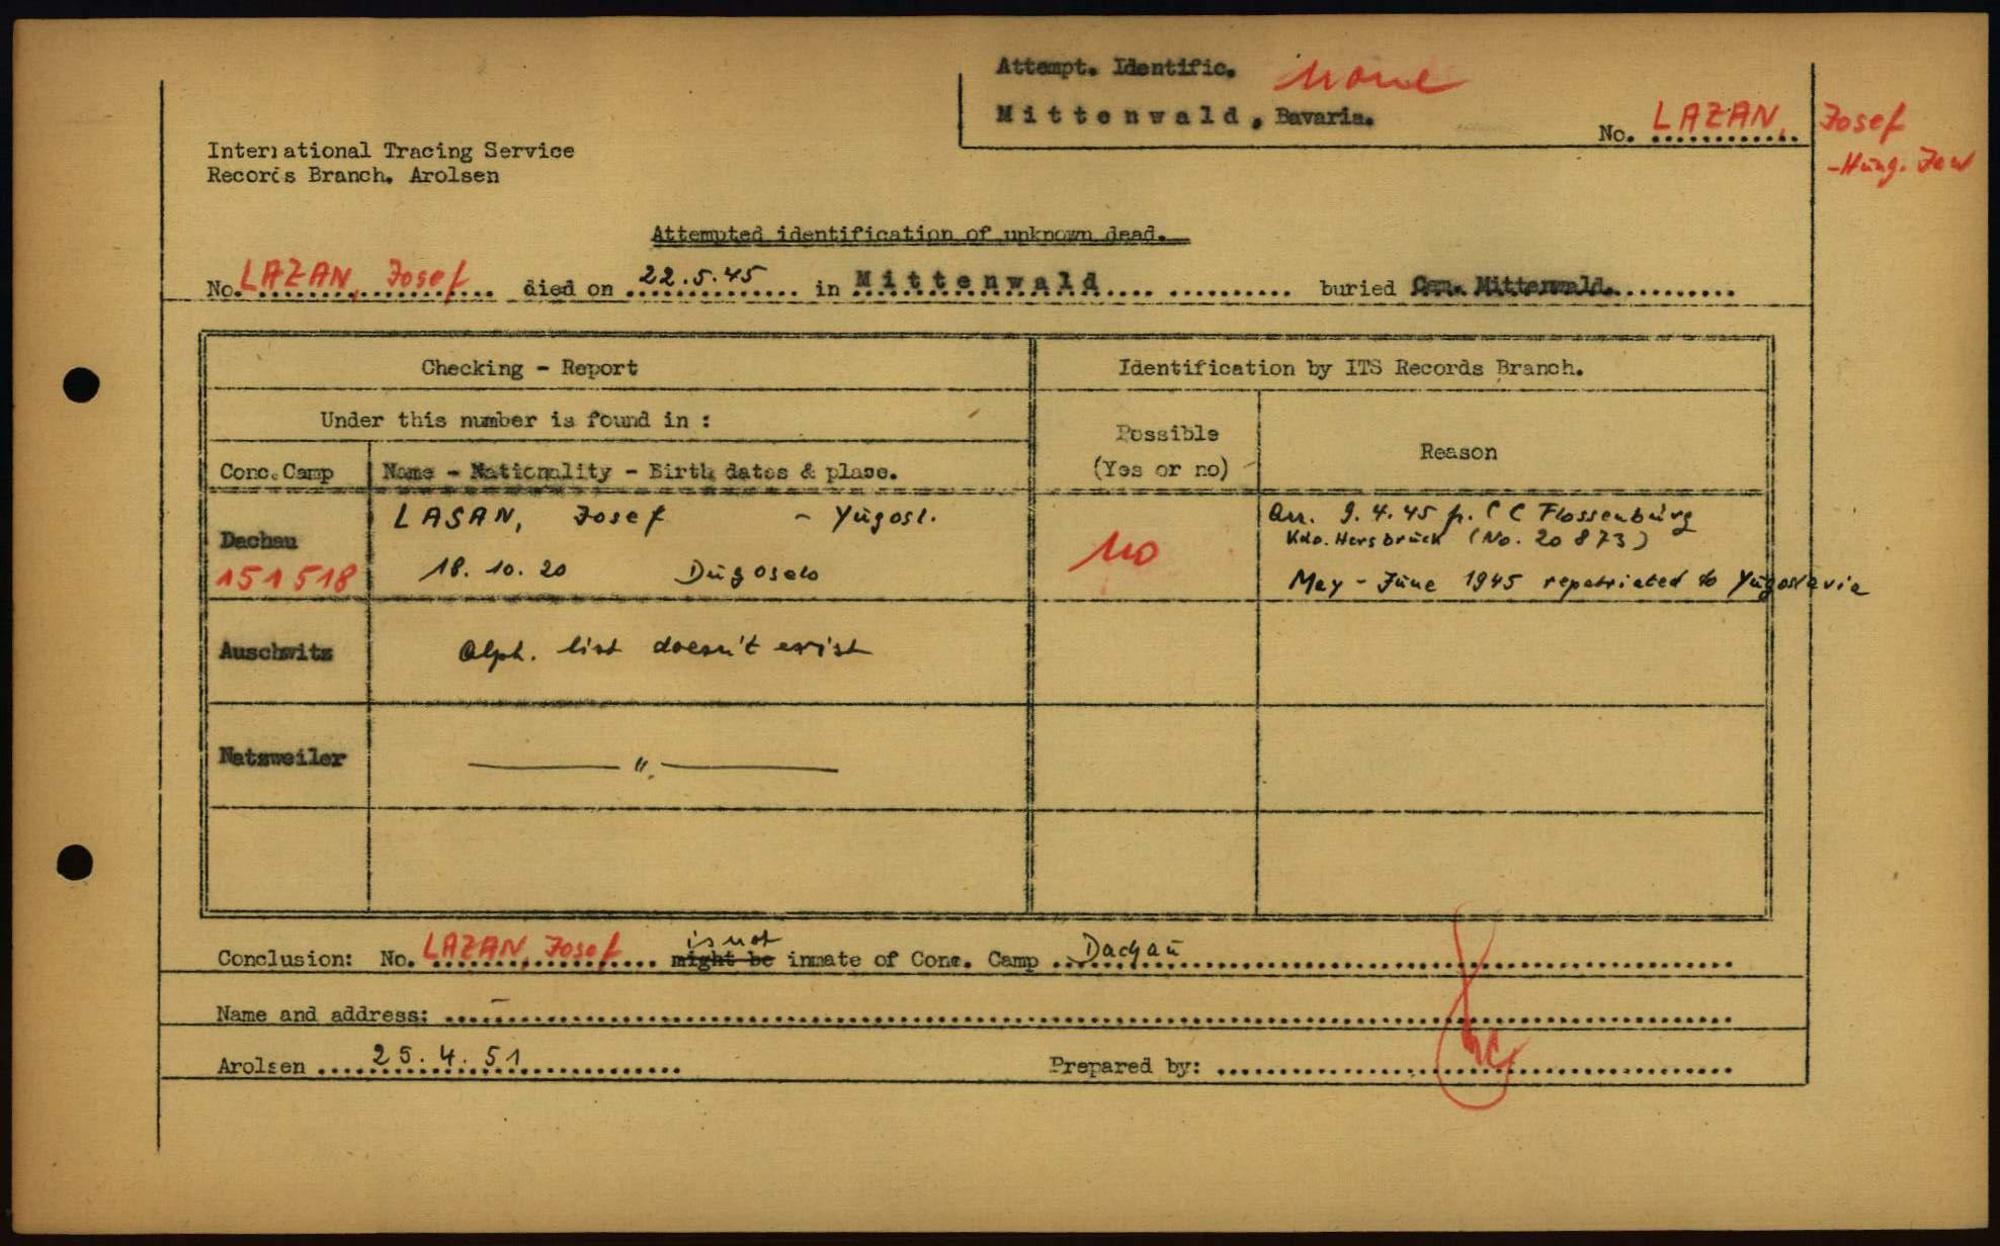 Attempt. Identific. none
Mittenwald, Bavaria.
No. LAZAN, Josef
-Hung. Jew
International Tracing Service
Records Branch. Arolsen
Attempted identification of unknown dead.
No. LAZAN, Josef died on 22.5.45 in Mittenwald buried Cem. Mittenwald.
Checking - Report
Identification by ITS Records Branch.
Under this number is found in :
Possible
(Yes or no)
Reason
Conc.Camp
Name - Nationality - Birth dates & place.
Dachau
151518
LASAN, Josef - Yugosl.
18.10.20 Dugoselo
no
Arr. 9.4.45 fr. CC Flossenbürg
Kdo. Hersbruck (No. 20873)
May - June 1945 repatriated to Yugoslavia
Auschwitz
Alph. list doesn't exist
Natzweiler
— " —
Conclusion: No. LAZAN, Josef is not might be inmate of Conc. Camp Dachau
Name and address: -
Arolsen 25.4.51
Prepared by: